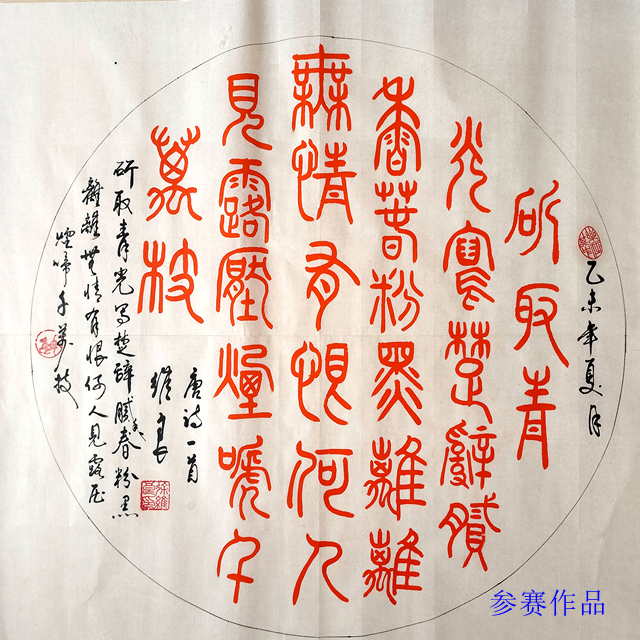 乙未年夏月
斫取青
光寫楚辭膩
香春粉黑離離
無情有恨何人
見露壓煙啼千
萬枝
唐詩一首
維良
斫取青光写楚辭膩香春粉黑
離離無情有恨何人見露压
煙啼千萬枝
参赛作品